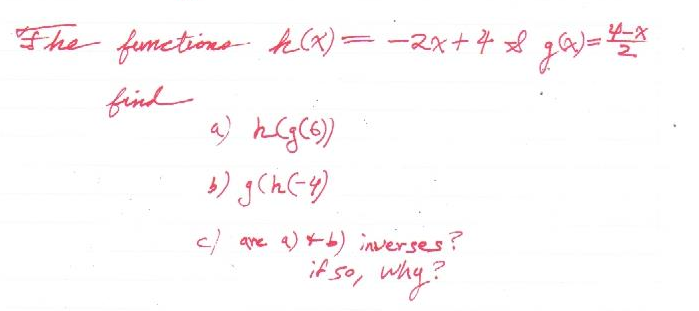 The functions h(x) = -2x + 4 & g(x) = \frac{4-x}{2}
find
a) h(g(6))
b) g(h(-4)
c) are a) + b) inverses?
if so, why?